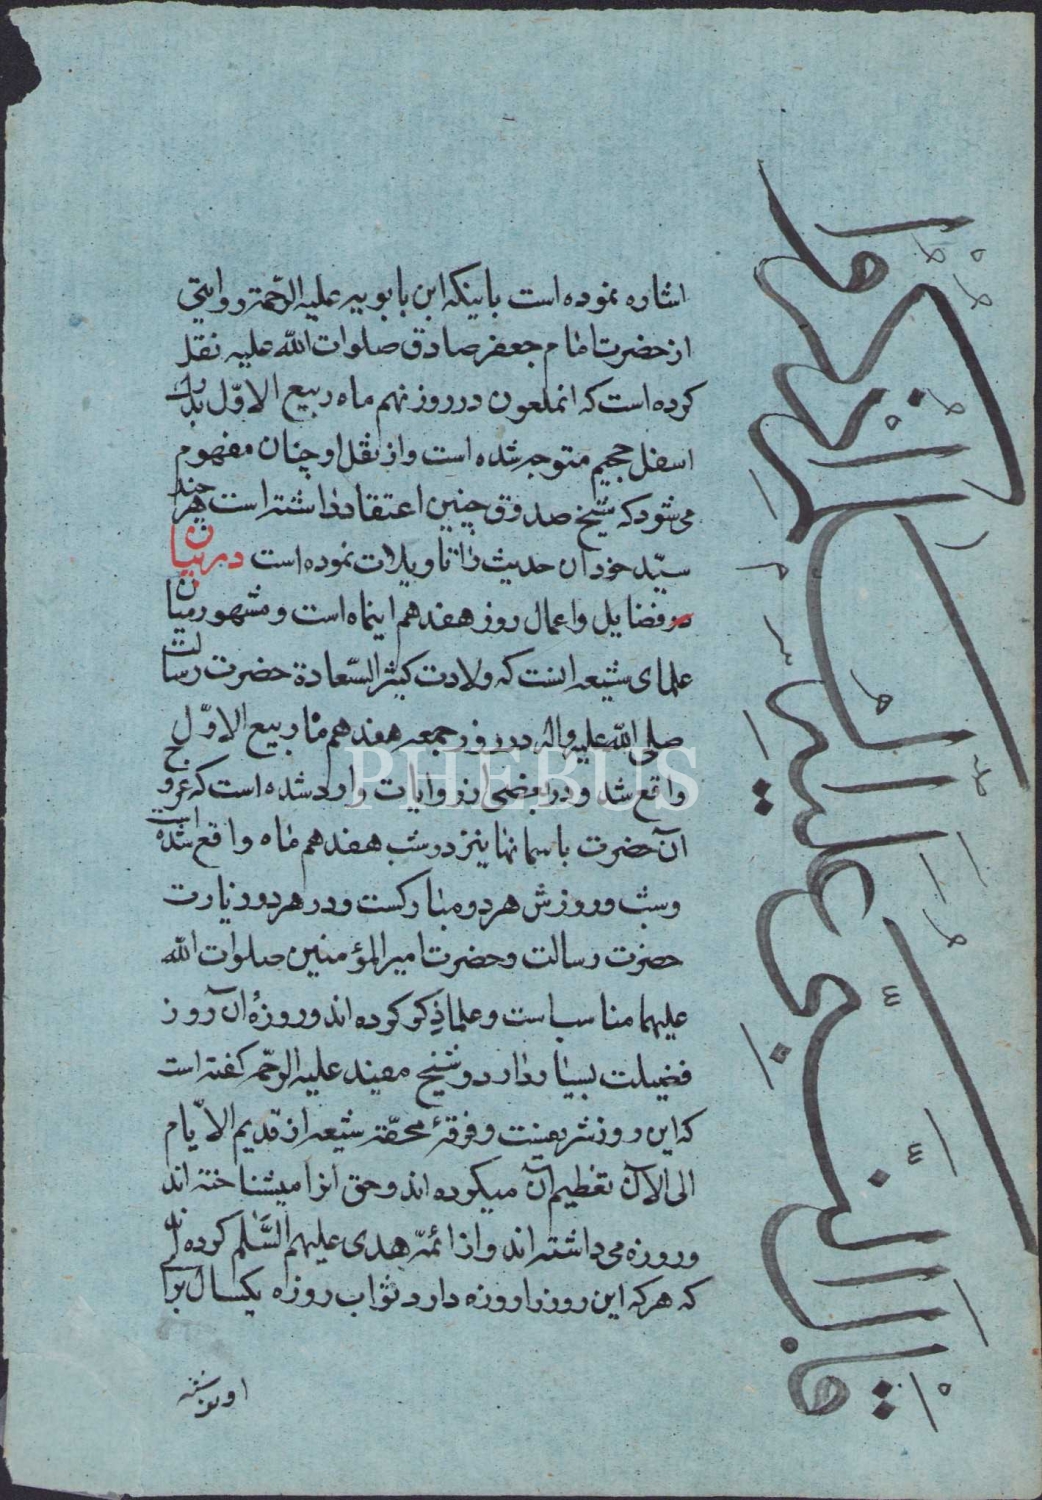 اشاره نموده است باینکه ابن بابویه علیه الرّحمة روایتی
از حضرت امام جعفر صادق صلوات الله علیه نقل
کرده است که انملعون در روز نهم ماه ربیع الاوّل بدرک
اسفل جحیم متوجه شده است و از نقل او چنان مفهوم
می شود که شیخ صدوق چنین اعتقاد داشته است هر چند
سیّد خود آن حدیث را تاویلات نموده است در بیان
فضایل و اعمال روز هفدهم اینماه است و مشهور میان
علمای شیعه انست که ولادت کثیر السّعادة حضرت رسالت
صلی الله علیه واله در روز جمعه هفدهم ماه ربیع الاوّل
واقع شد و در بعضی از روایات وارد شده است که عروج
آن حضرت باسمانها نیز در شب هفدهم ماه واقع شده است
و شب و روزش هر دو مبارکست و در هر دو زیارت
حضرت رسالت و حضرت امیر المؤمنین صلوات الله
علیهما مناسب است و علما ذکر کرده اند و روزهٔ ان روز
فضیلت بسیار دارد و شیخ مفید علیه الرحمه گفته است
که این روز شریفیست و فرقهٔ محقّه شیعه از قدیم الایّام
الی الآن تعظیم آن میکرده اند و حق انرا میشناخته اند
و روزه می داشته اند و از ائمهٔ هدی علیهم السّلم کرده اند
که هر که این روز را روزه دارد ثواب روزه یکسال برا
او نوشته
PHEBUS